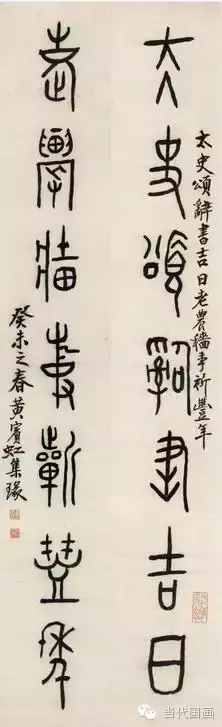 太史頌辭書吉日老農穡事祈豐年
大史頌辭書吉日
老農穡事祈豐年
癸未之春黃賓虹集瑑
当代国画